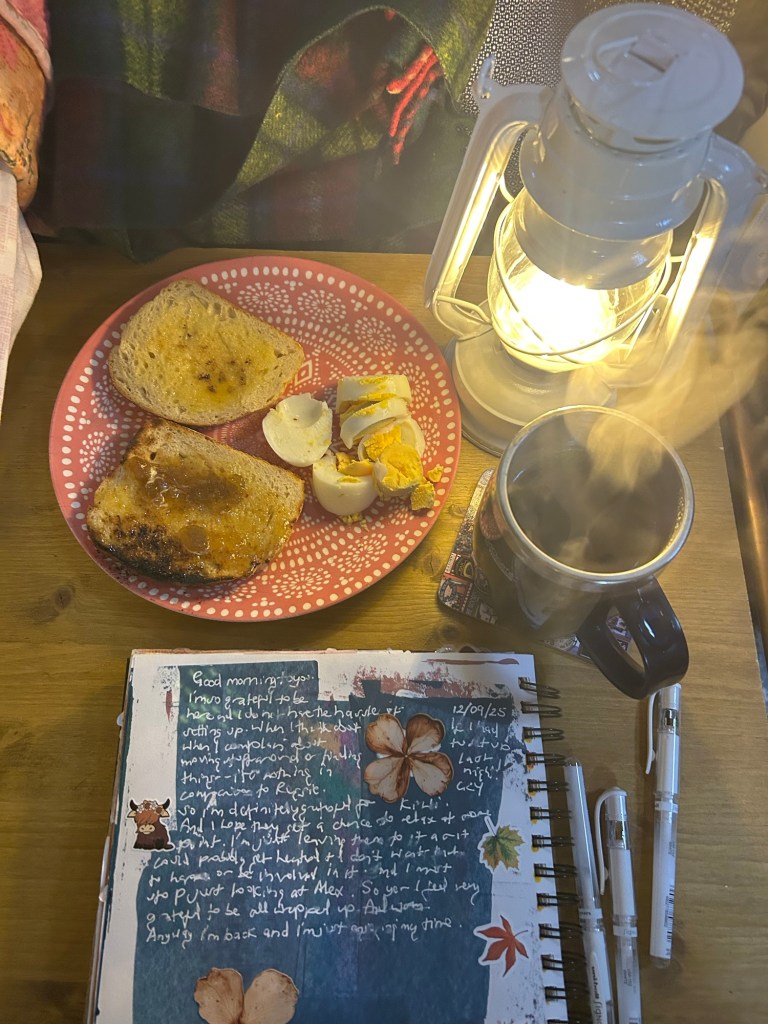 Good morning to you.
I'm so grateful to be
here and I do not have the hassle of
setting up. When I think about
12/09/25
when I complain about
moving
things - it's nothing in
comparison to
last
night
So I'm definitely grateful for
And I hope they get a chance to relax at some
point. I'm just leaving them to it a bit
could probably get heated + I don't want that
to happen or be involved in it. And I must
stop just looking at Alex. So yes I feel very
grateful to be all wrapped up. And warm.
Anyway I'm back and I'm just enjoying my time.